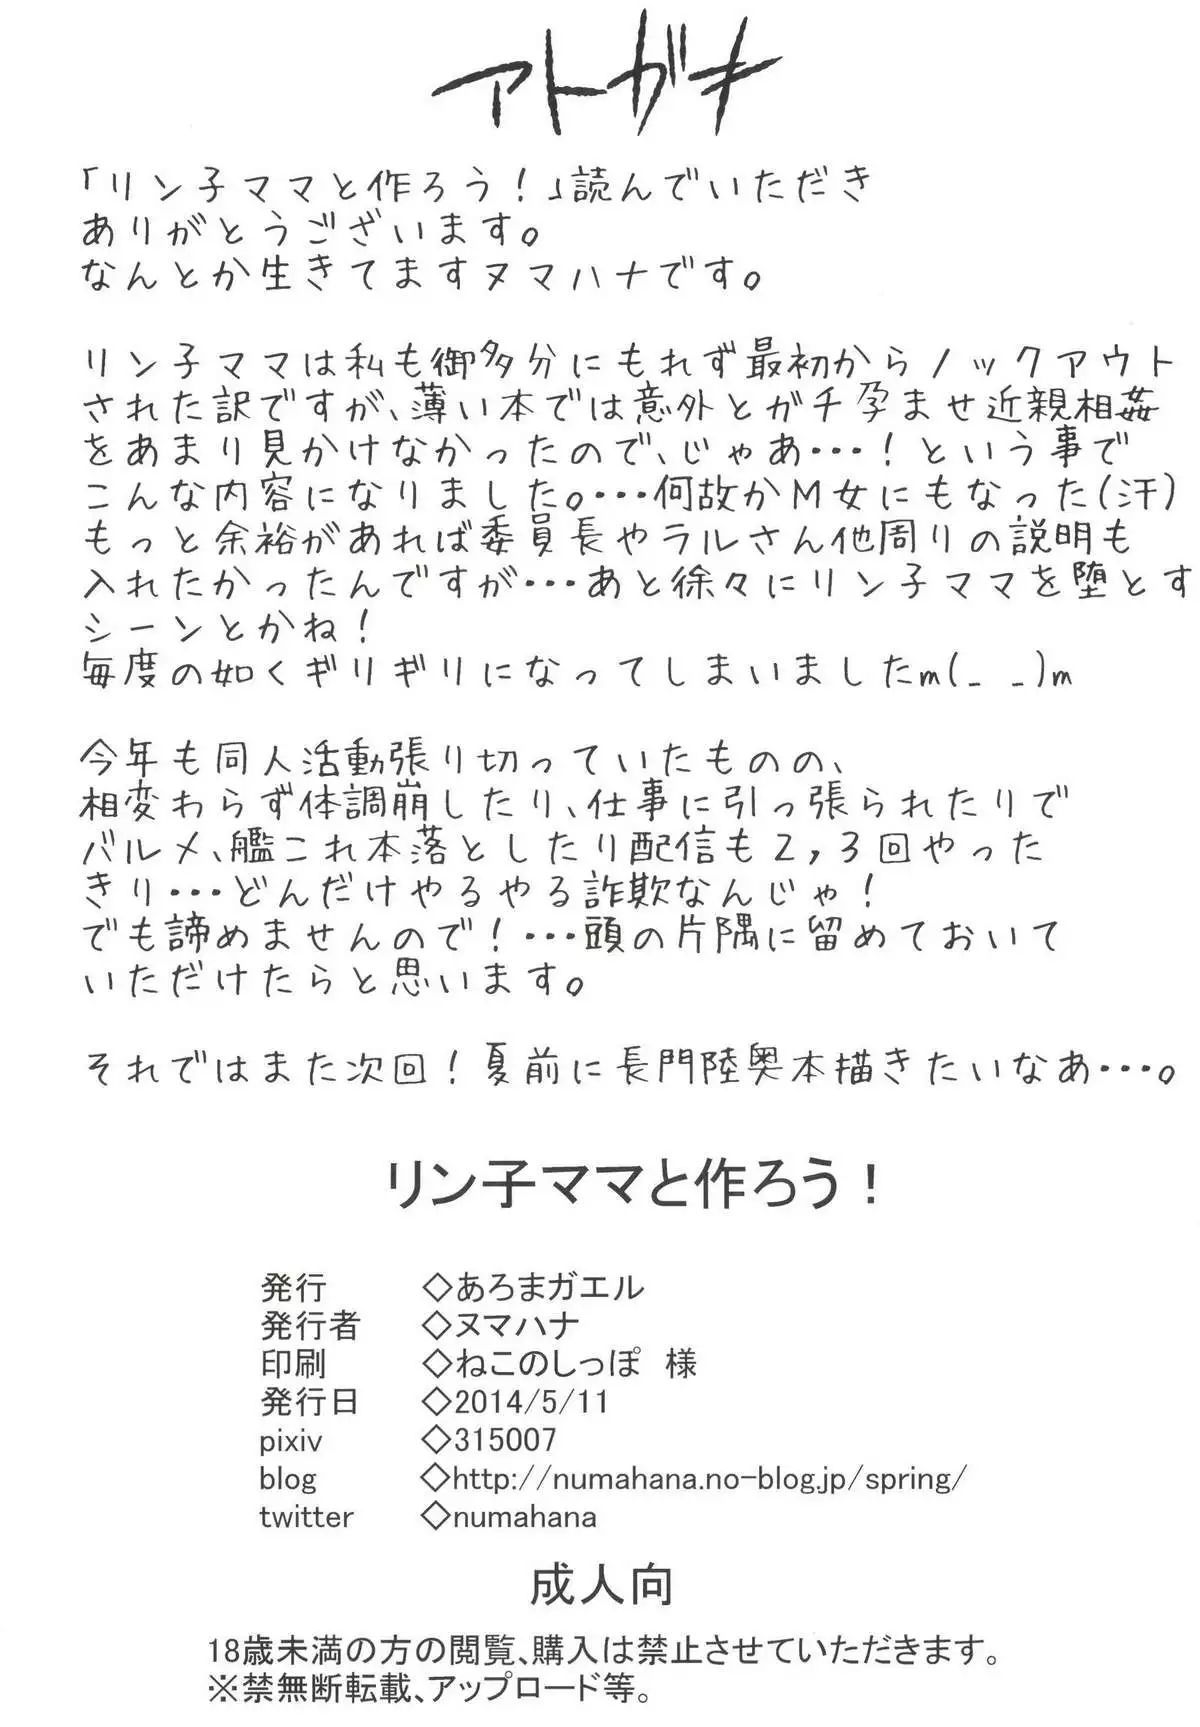 アトガキ
「リン子ママと作ろう！」読んでいただき
ありがとうございます。
なんとか生きてますヌマハナです。
リン子ママは私も御多分にもれず最初からノックアウト
された訳ですが、薄い本では意外とガチ孕ませ近親相姦
をあまり見かけなかったので、じゃあ・・・！という事で
こんな内容になりました。・・・何故かM女にもなった(汗)
もっと余裕があれば委員長やラルさん他周りの説明も
入れたかったんですが・・・あと徐々にリン子ママを堕とす
シーンとかね！
毎度の如くギリギリになってしまいましたm(_ _)m
今年も同人活動張り切っていたものの、
相変わらず体調崩したり、仕事に引っ張られたりで
バルメ、艦これ本落としたり配信も2,3回やった
きり・・・どんだけやるやる詐欺なんじゃ！
でも諦めませんので！・・・頭の片隅に留めておいて
いただけたらと思います。
それではまた次回！夏前に長門陸奥本描きたいなあ・・・。
リン子ママと作ろう！
発行 ◇あろまガエル
発行者 ◇ヌマハナ
印刷 ◇ねこのしっぽ 様
発行日 ◇2014/5/11
pixiv ◇315007
blog ◇http://numahana.no-blog.jp/spring/
twitter ◇numahana
成人向
18歳未満の方の閲覧、購入は禁止させていただきます。
※禁無断転載、アップロード等。